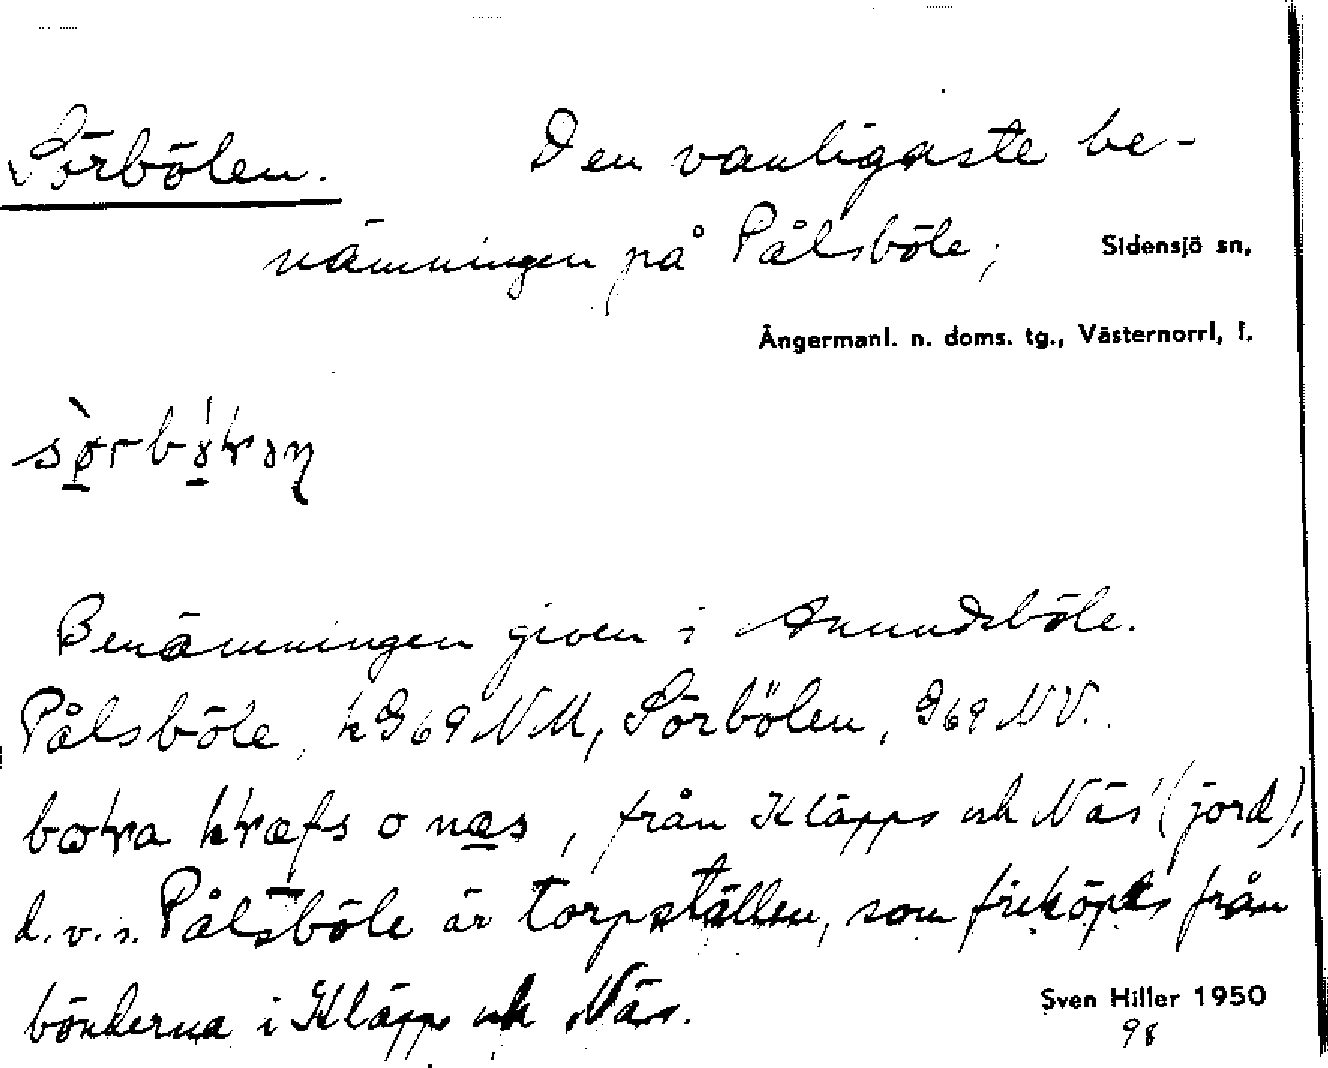 Sörbölen. Den vanligaste be-
nämningen på Pålsböle;
Sidensjö sn,
Ångermanl. n. doms. tg., Västernorrl, l.
Benämningen given i Anundsböle.
Pålsböle, kG69NM, Sörbölen, G69NV.
från Kläpps och Näs' (jord),
d.v.s. Pålsböle är torpställen, som friköpts från
bönderna i Kläpp och Näs.
Sven Hiller 1950
98